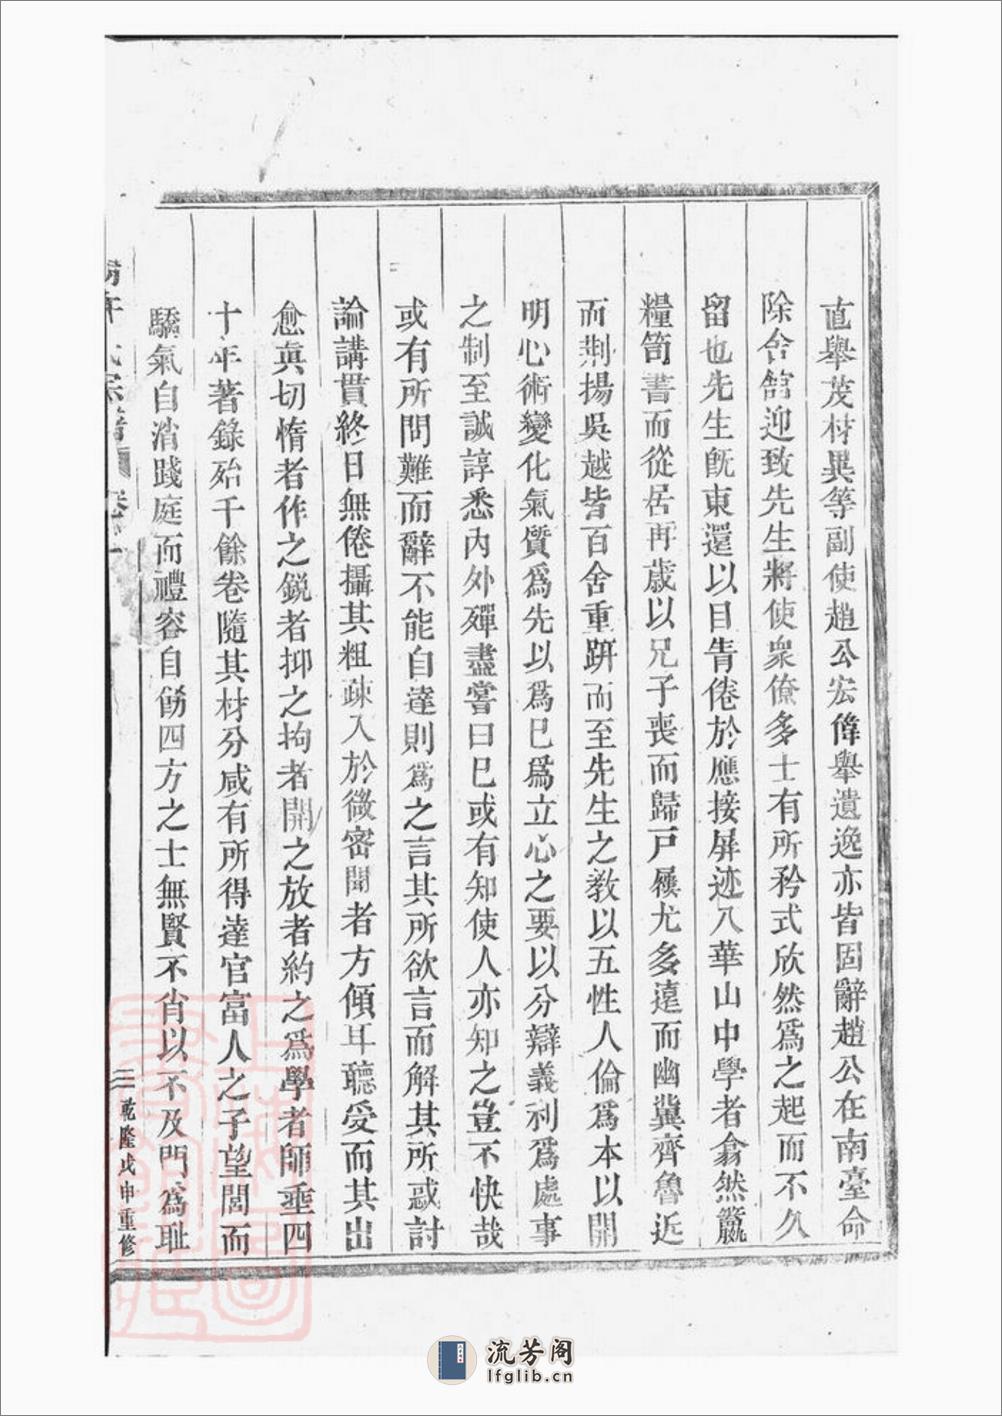 直舉茂材異等副使趙公宏偉舉遺逸亦皆固辭趙公在南臺命
除舍館迎致先生將使衆僚多士有所矜式欣然爲之起而不久
留也先生旣東還以目眚倦於應接屏迹八華山中學者翕然籝
糧笥書而從居再歲以兄子喪而歸戸屨尤多遠而幽冀齊魯近
而荆揚吳越皆百舍重趼而至先生之教以五性人倫爲本以開
明心術變化气質爲先以爲巳爲立心之要以分辯義利爲處事
之制至誠諄悉内外殫盡嘗曰巳或有知使人亦知之豈不快哉
或有所問難而辭不能自達則爲之言其所欲言而解其所惑討
論講貫終日無倦攝其粗疎入於微密聞者方傾耳聽受而其出
愈眞切惰者作之鋭者抑之拘者開之放者約之爲學者師垂四
十年著錄殆千餘卷隨其材分咸有所得達官富人之子望閭而
驕氣自消踐庭而禮容自飭四方之士無賢不肖以不及門爲耻
氏宗譜 卷
三 乾隆戊申重修
流芳阁
lfglib.cn